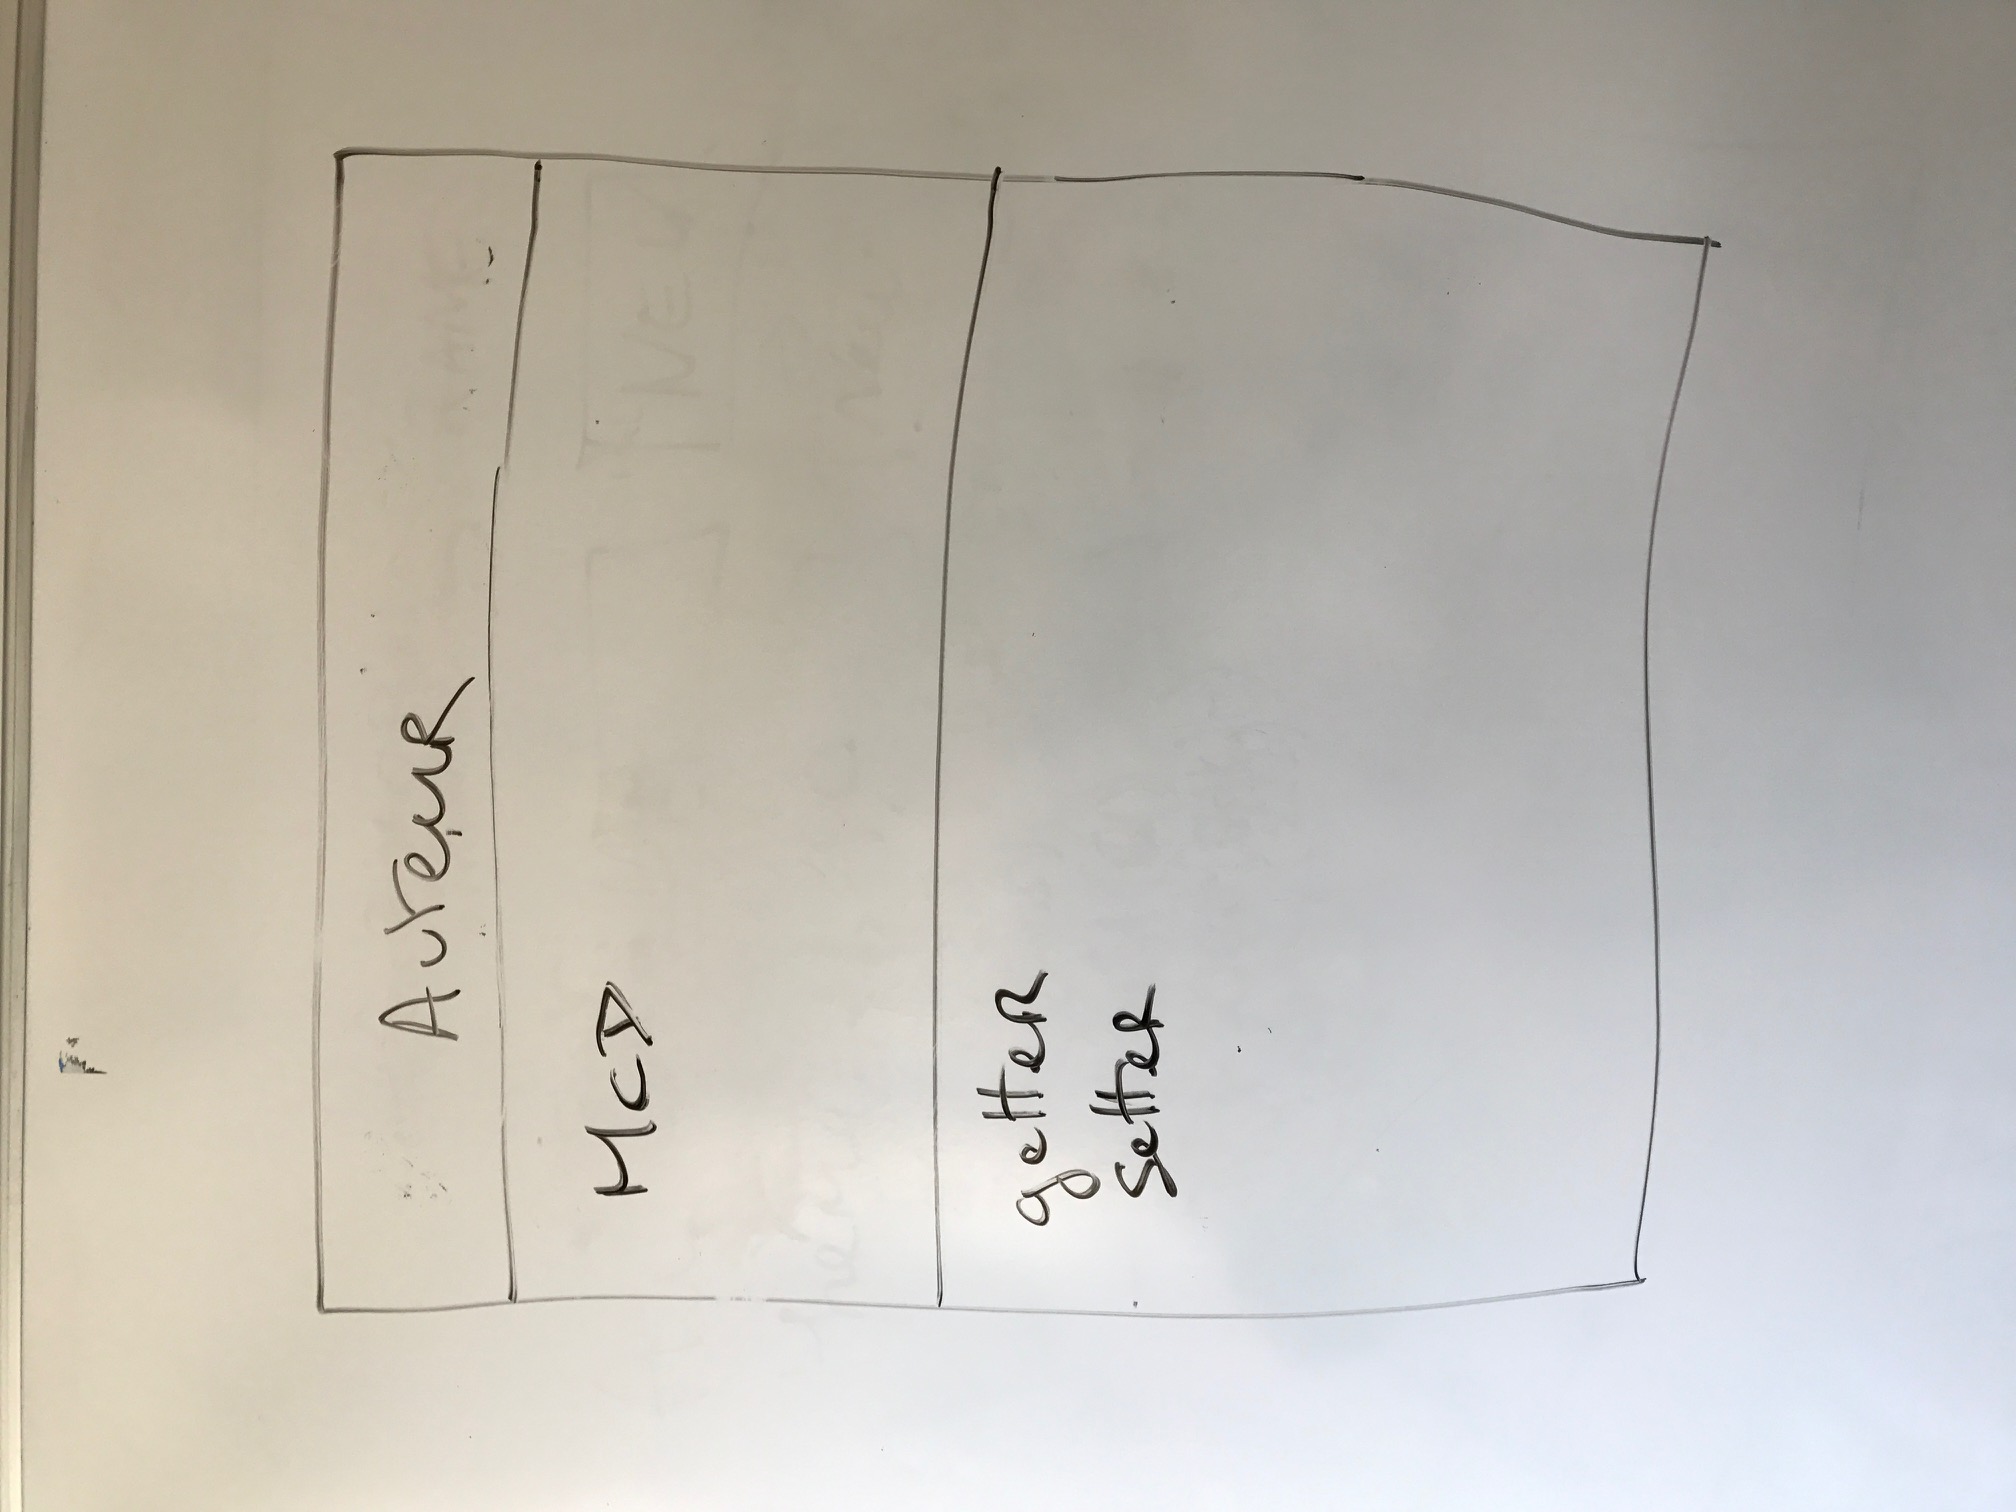 Auteur
MCD
getter
setter
NEW